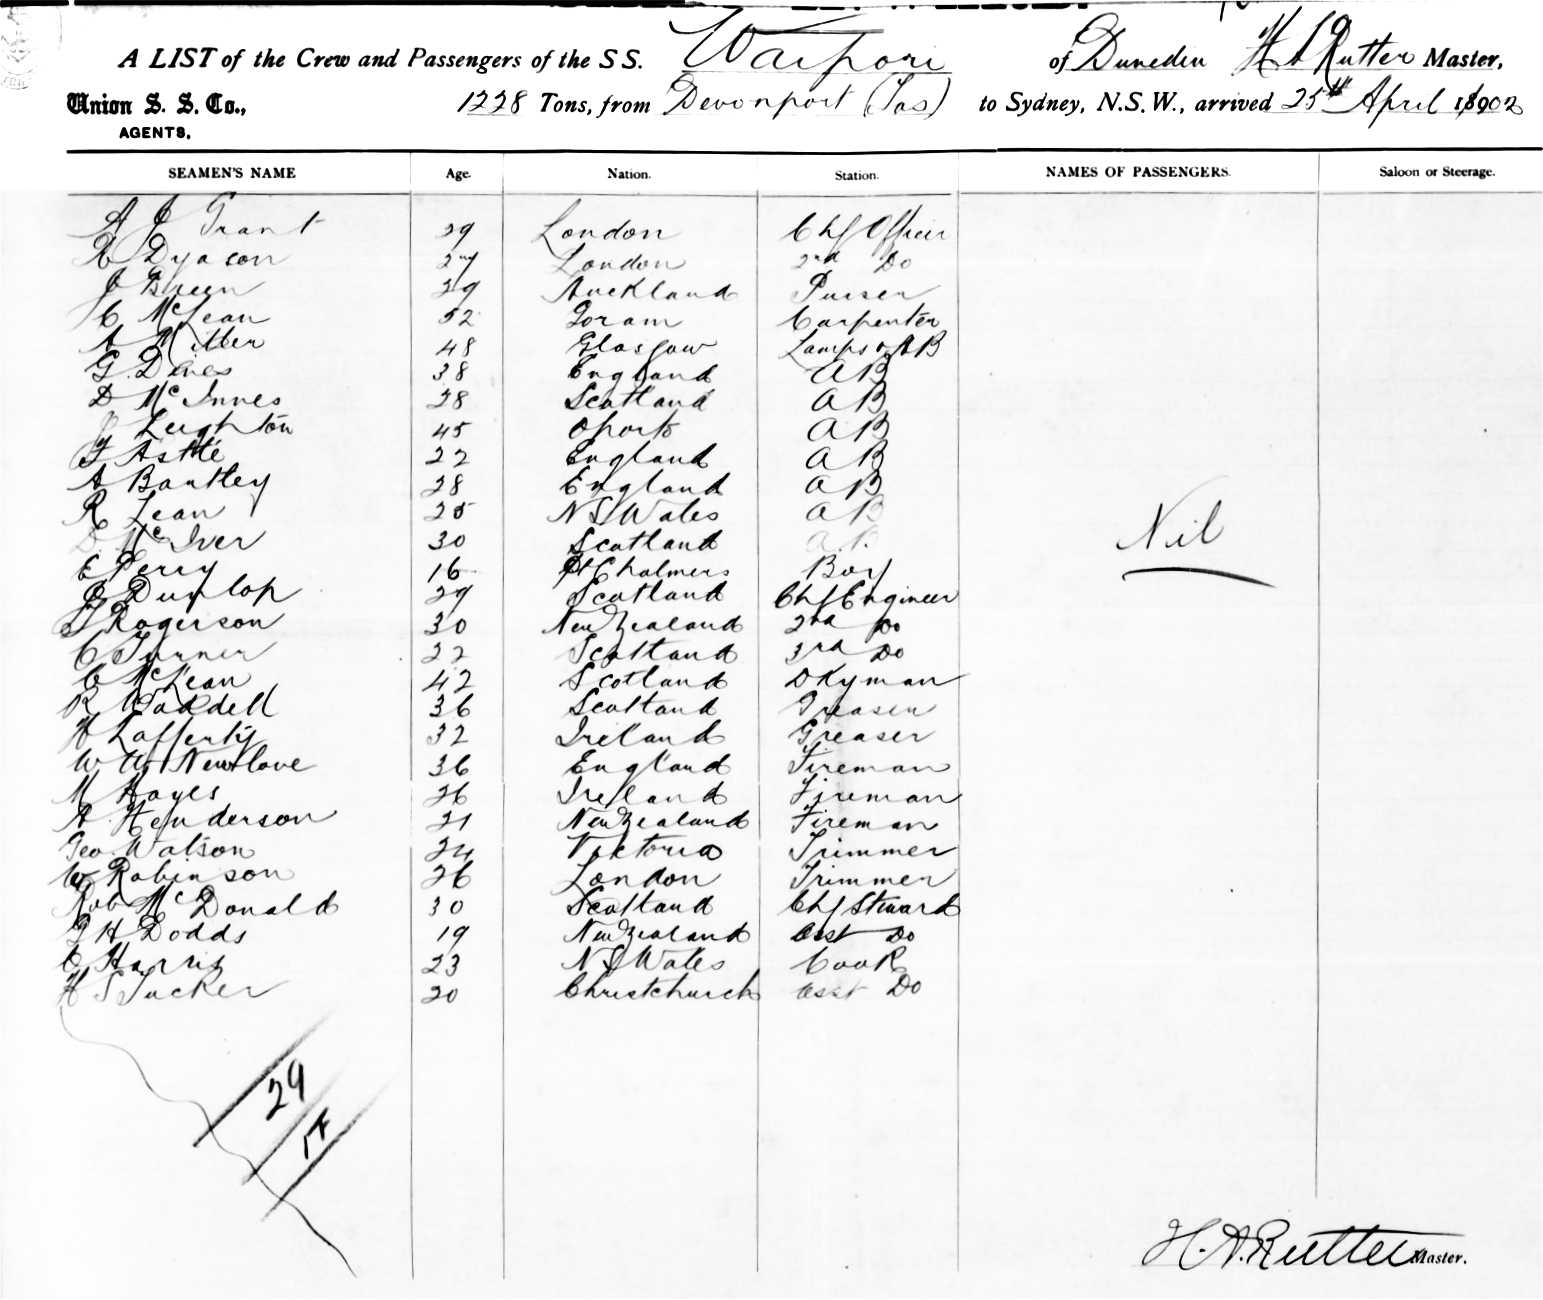 A LIST of the Crew and Passengers of the SS. Waipori of Dunedin H A Rutter Master,
Union S. S. Co., 1228 Tons, from Devonport (Tas) to Sydney, N.S.W., arrived 25th April 1902
AGENTS,
SEAMEN'S NAME Age. Nation. Station. NAMES OF PASSENGERS. Saloon or Steerage.
A J Grant 29 London Chf Officer
Dyason 27 London 2nd Do
J Green 29 Auckland Purser
C McLean 52 Carpenter
A Miller 48 Glasgow Lamps & AB
G. Dines 38 England AB
D McInnes 28 Scotland AB
J Leighton 45 Oporto AB
F Astle 22 England AB
A Bantley 28 England AB
R Lean 25 N S Wales AB
D McIver 30 Scotland A.B.
E Perry 16 Pt Chalmers Boy
J Dunlop 29 Scotland Chf Engineer
T Rogerson 30 New Zealand 2nd Do
C Turner 22 Scotland 3rd Do
C McLean 42 Scotland Dkyman
R Waddell 36 Scotland Greaser
H Lafferty 32 Ireland Greaser
W W Newlove 36 England Fireman
M Hayes 26 Ireland Fireman
A Henderson 21 New Zealand Fireman
Geo Watson 24 Victoria Trimmer
W Robinson 26 London Trimmer
Rob McDonald 30 Scotland Chf Steward
G H Dodds 19 New Zealand Asst Do
C Harris 23 N S Wales Cook
H S Tucker 20 Christchurch Asst Do
Nil
29
H. A. Rutter Master.